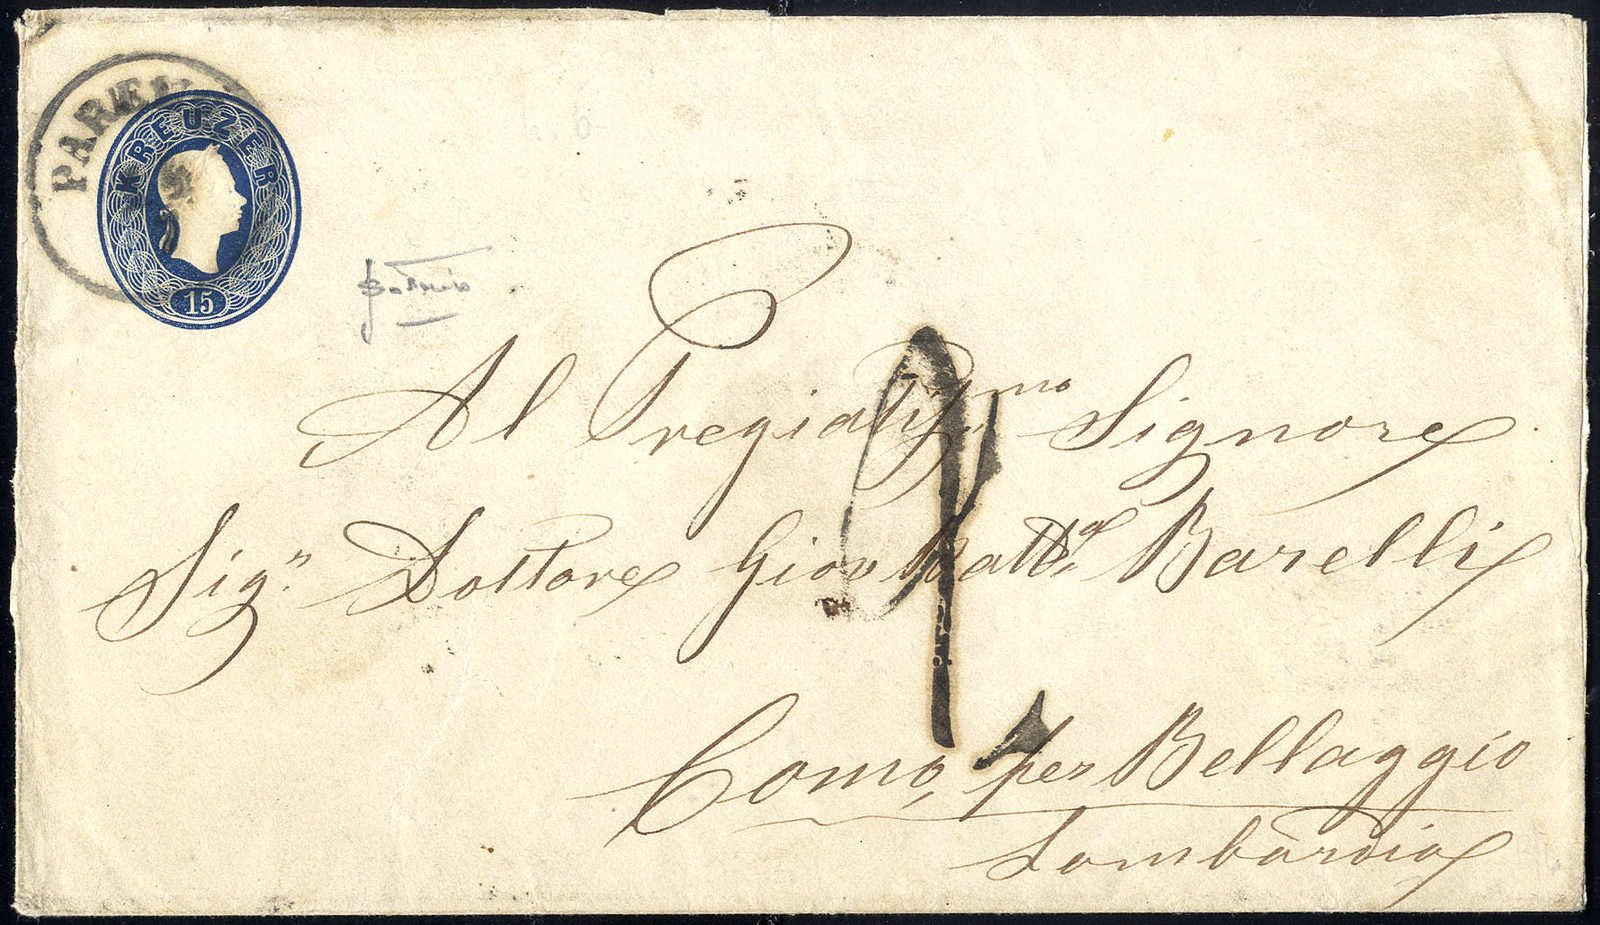 PAREN
KREUZER
15
Al Pregiatis.mo Signore
Sig.r Dottore Giov Batt.a Barelli
Como, per Bellaggio
Lombardia